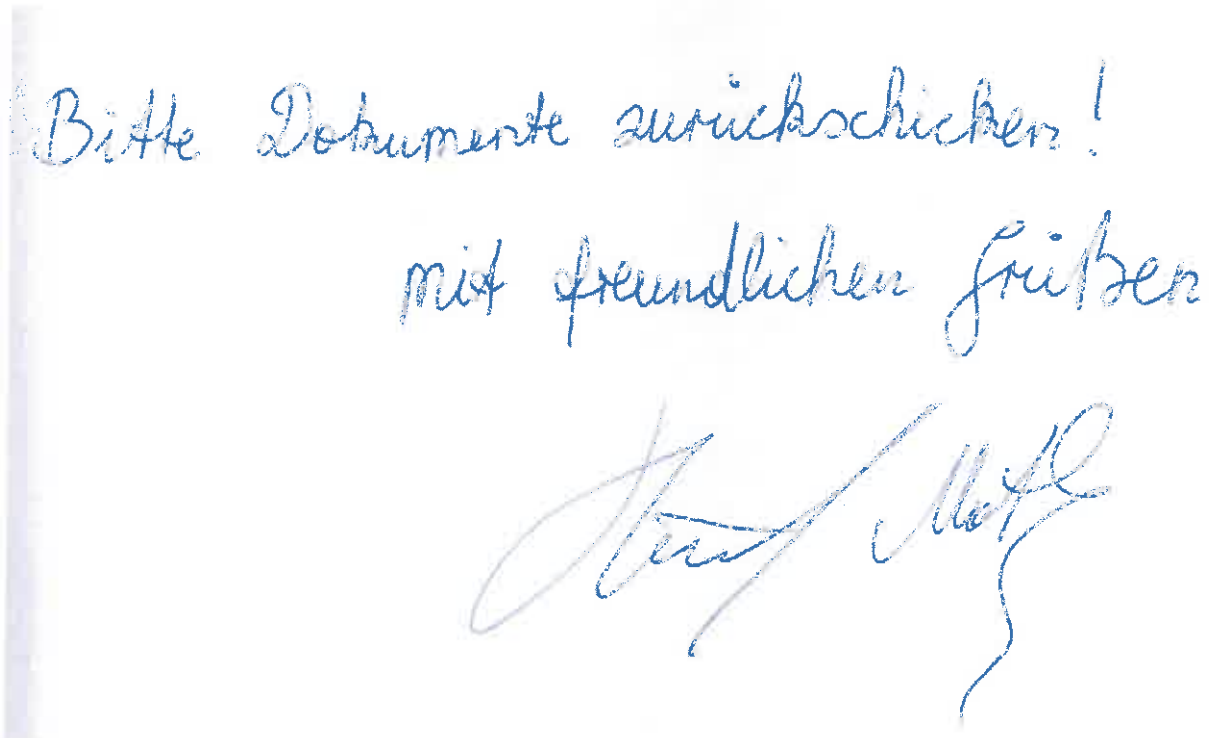 Bitte Dokumente zurückschicken!
mit freundlichen Grüßen